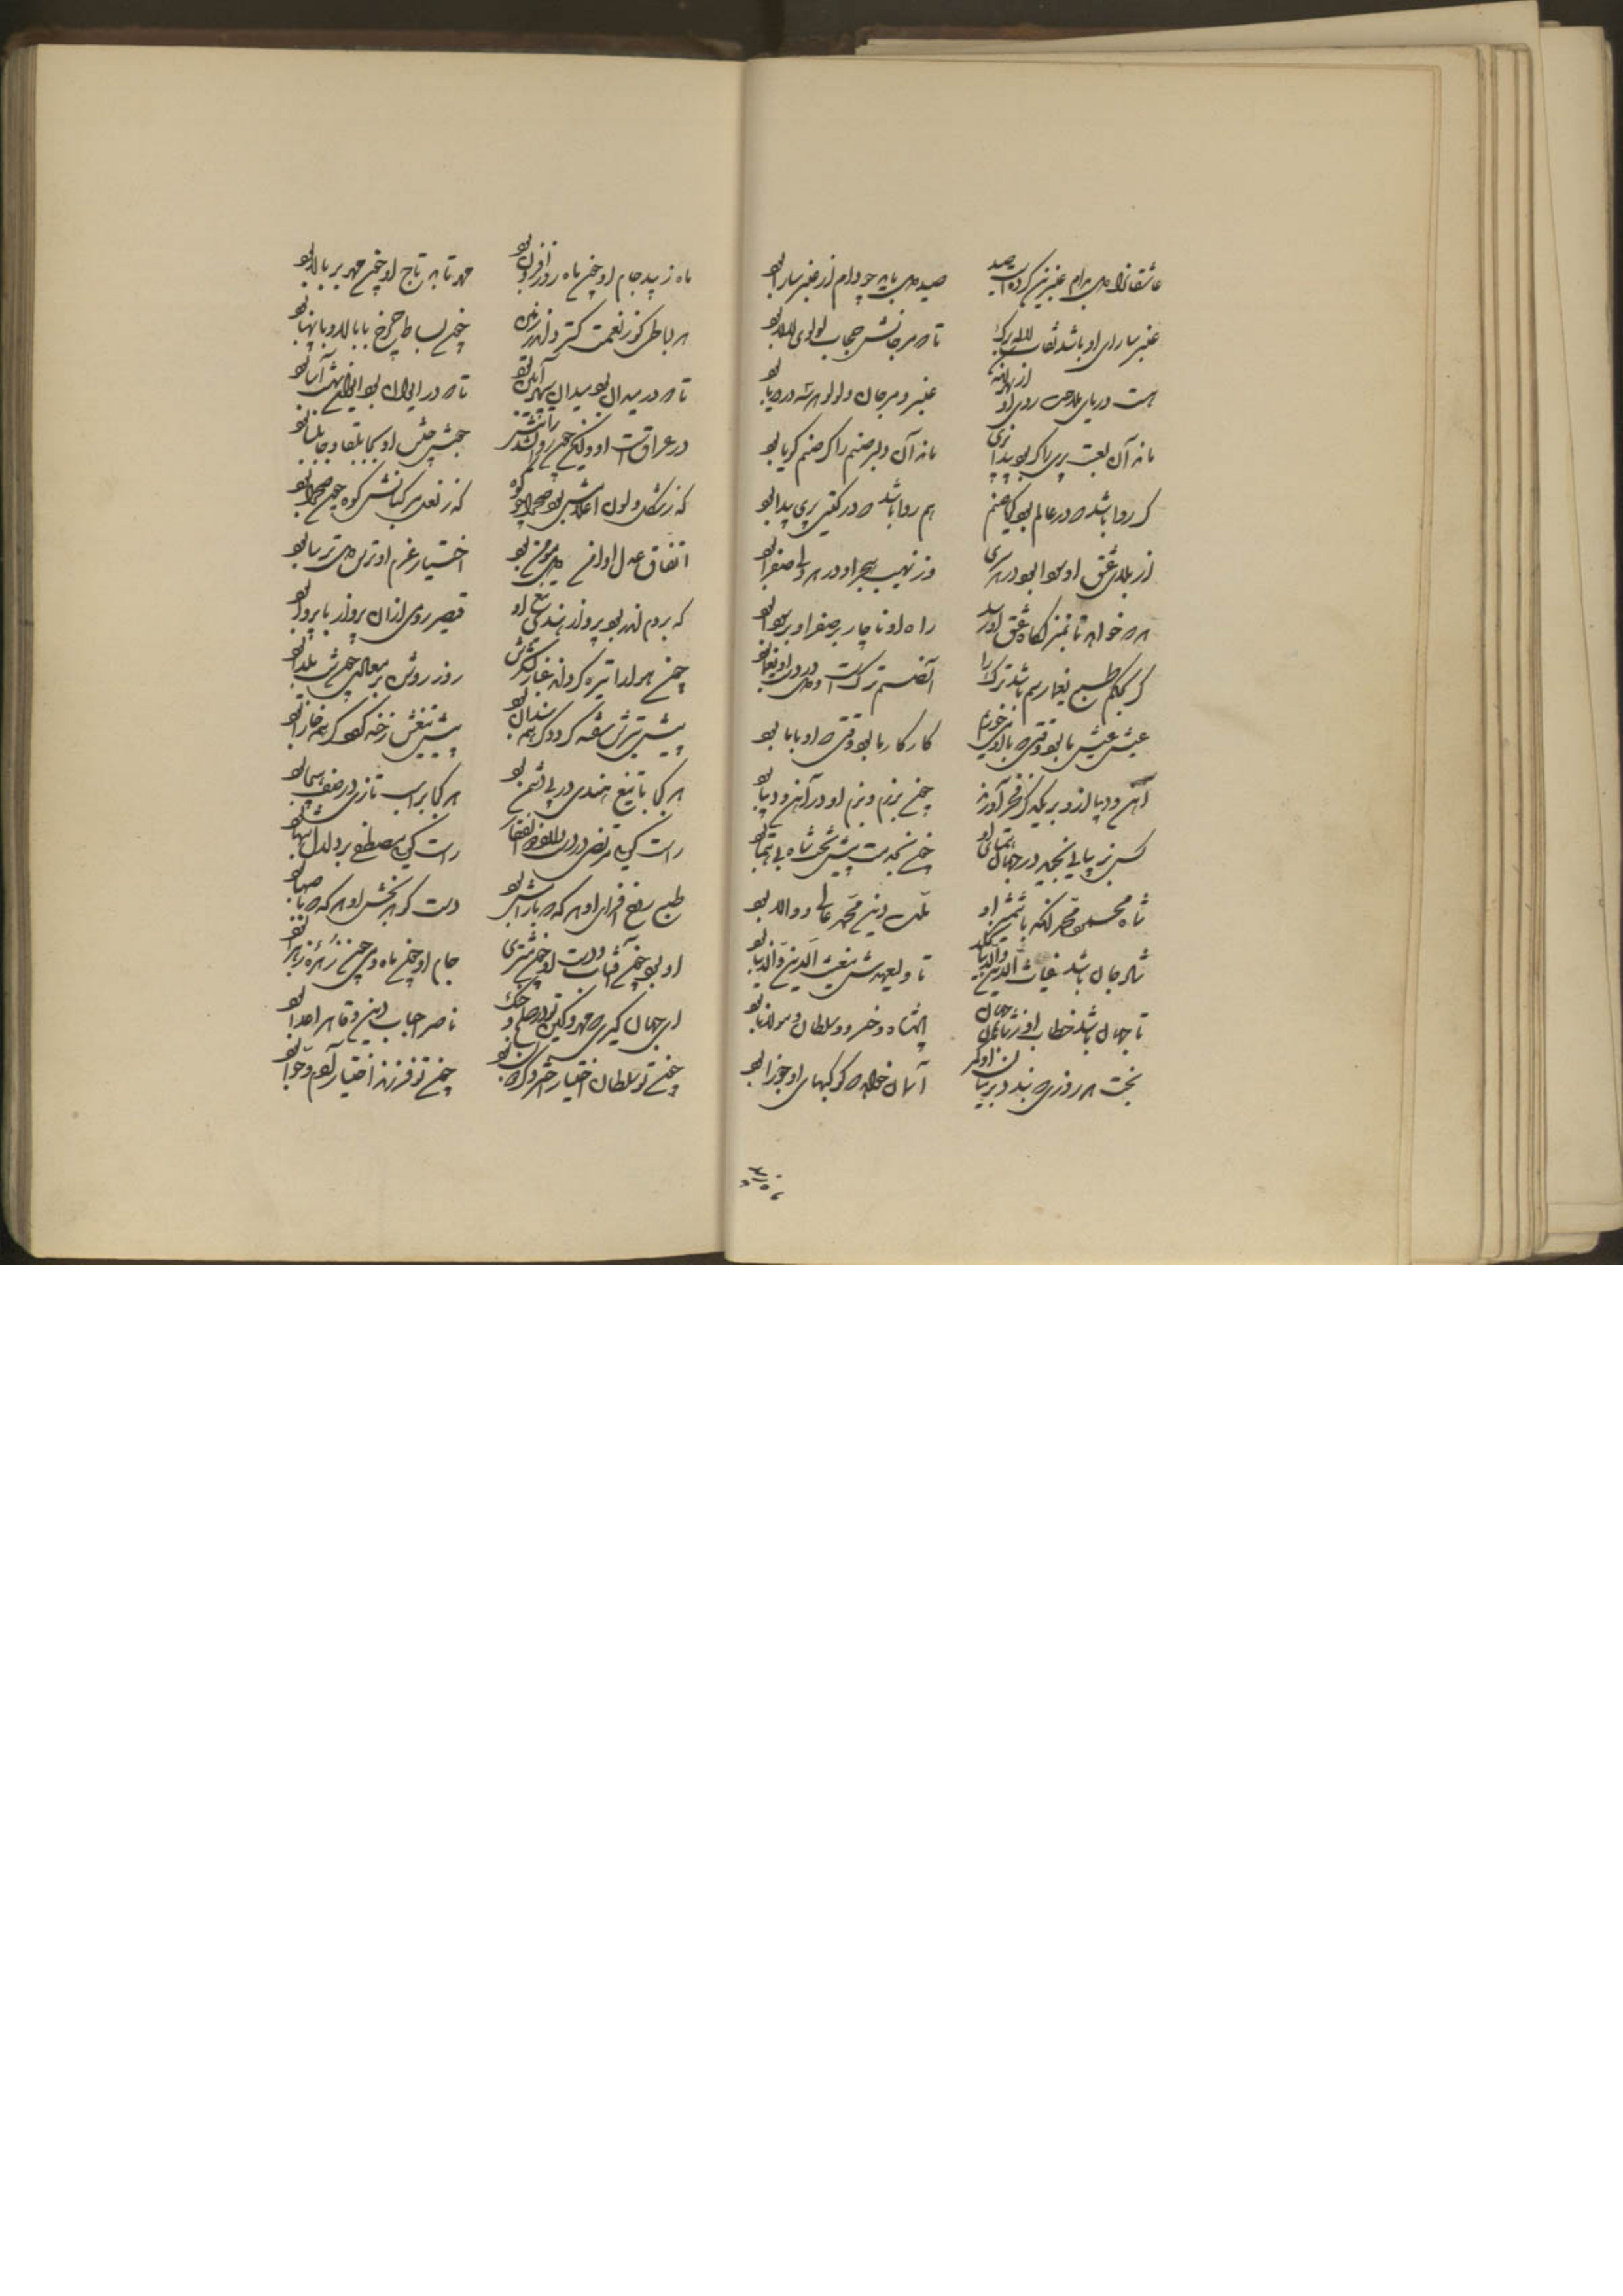 عاشقانرا دل بدام عنبرین کردست صید صید دل باید چو دام از عنبر سارا بود
عنبر سارای او باشد نقاب لاله برگ تا که مرجانش حجاب لولوی لالا بود
هست دریای ملاحت روی او از بهر آنک عنبر و مرجان و لولو هر سه در دریا بود
ماند آن لعبت پری را گر بود پیدا پری ماند آن دلبر صنم را گر صنم گویا بود
کی روا باشد که در عالم بود گویا صنم هم روا باشد که در گیتی پری پیدا بود
از بلای عشق او سودا بود در هر سری وز نهیب هجر او در هر دلی صفرا بود
هر که خواهد تا نخیزد گاه عشق او رسد راه او ناچار بر صفرا و بر سودا بود
گر بحکم طبع یغما رسم باشد ترک را آن صنم ترکست و دل در دست او یغما بود
عیش عیش ما بود وقتی که با او می خوریم کار کار ما بود وقتی که او با ما بود
آهن و دیبا ازو بر یکدگر فخر آورند چون برزم و بزم او در آهن و دیبا بود
کس نزیبایی نبیند در جهان همتای او چون بخدمت پیش تخت شاه بی همتا بود
شاه محمود محمد آنکه با شمشیر او ملت دین محمد عالی و والا بود
شاد جان باشد غیاث الدین والدنیا ملک تا ولیعهدش مغیث الدین والدنیا بود
تا جهان باشد خطاب او ز شاهان جهان پادشاه و خسرو و سلطان و مولانا بود
بخت هر روزی که بندد بر میان او کمر آسمان خواهد که کوکبهای او جوزا بود
ماه زیبد جام او چون ماه روزافزون بود مهر تابد تاج او چون مهر بر بالا بود
هر بساطی کو ز نعمت گسترد اندر زمین چون بساط چرخ با بالا و با پهنا بود
تا که در میدان بود میدان سپهر آیین بود تا که در ایوان بود ایوان بهشت آسا بود
در عراقست او ولیکن چون روان شد رایتش جنبش جیش او بجابلقا و جابلسا بود
که ز شکل و لون اعلامش بود صحرا چو کوه که ز نعل مرکبانش کوه چون صحرا بود
اتفاق عدل او انس دل مومن بود اختیار عزم او ترس دل ترسا بود
که بروم اندر بود پرواز هندی تیغ او قیصر رومی از آن پرواز بی پروا بود
چون هوا را تیره گرداند غبار لشکرش روز روشن بر معادی چون شب یلدا بود
پیش تیرش سفته گردد گر همه سندان بود پیش تیغش رخنه گردد گر همه خارا بود
هر کجا با تیغ هندی در پی دشمن بود هر کجا بر اسب تازی در صف هیجا بود
راست گویی مرتضی در دست او ذوالفقار راست گویی مصطفی بر دلدل شهبا بود
طبع روح افزای او هر گه که با رامش بود دست گوهربخش او هر گه که با صهبا بود
او بود چون آفتاب و دست او چون مشتری جام او چون ماه و می چون زهره زهرا بود
ای جهانگیری که مهر و کین تو در صلح و جنگ ناصر احباب دین و قاهر اعدا بود
چون تو سلطان اختیار خسروان بود چون تو فرزند افتخار آدم و حوا بود